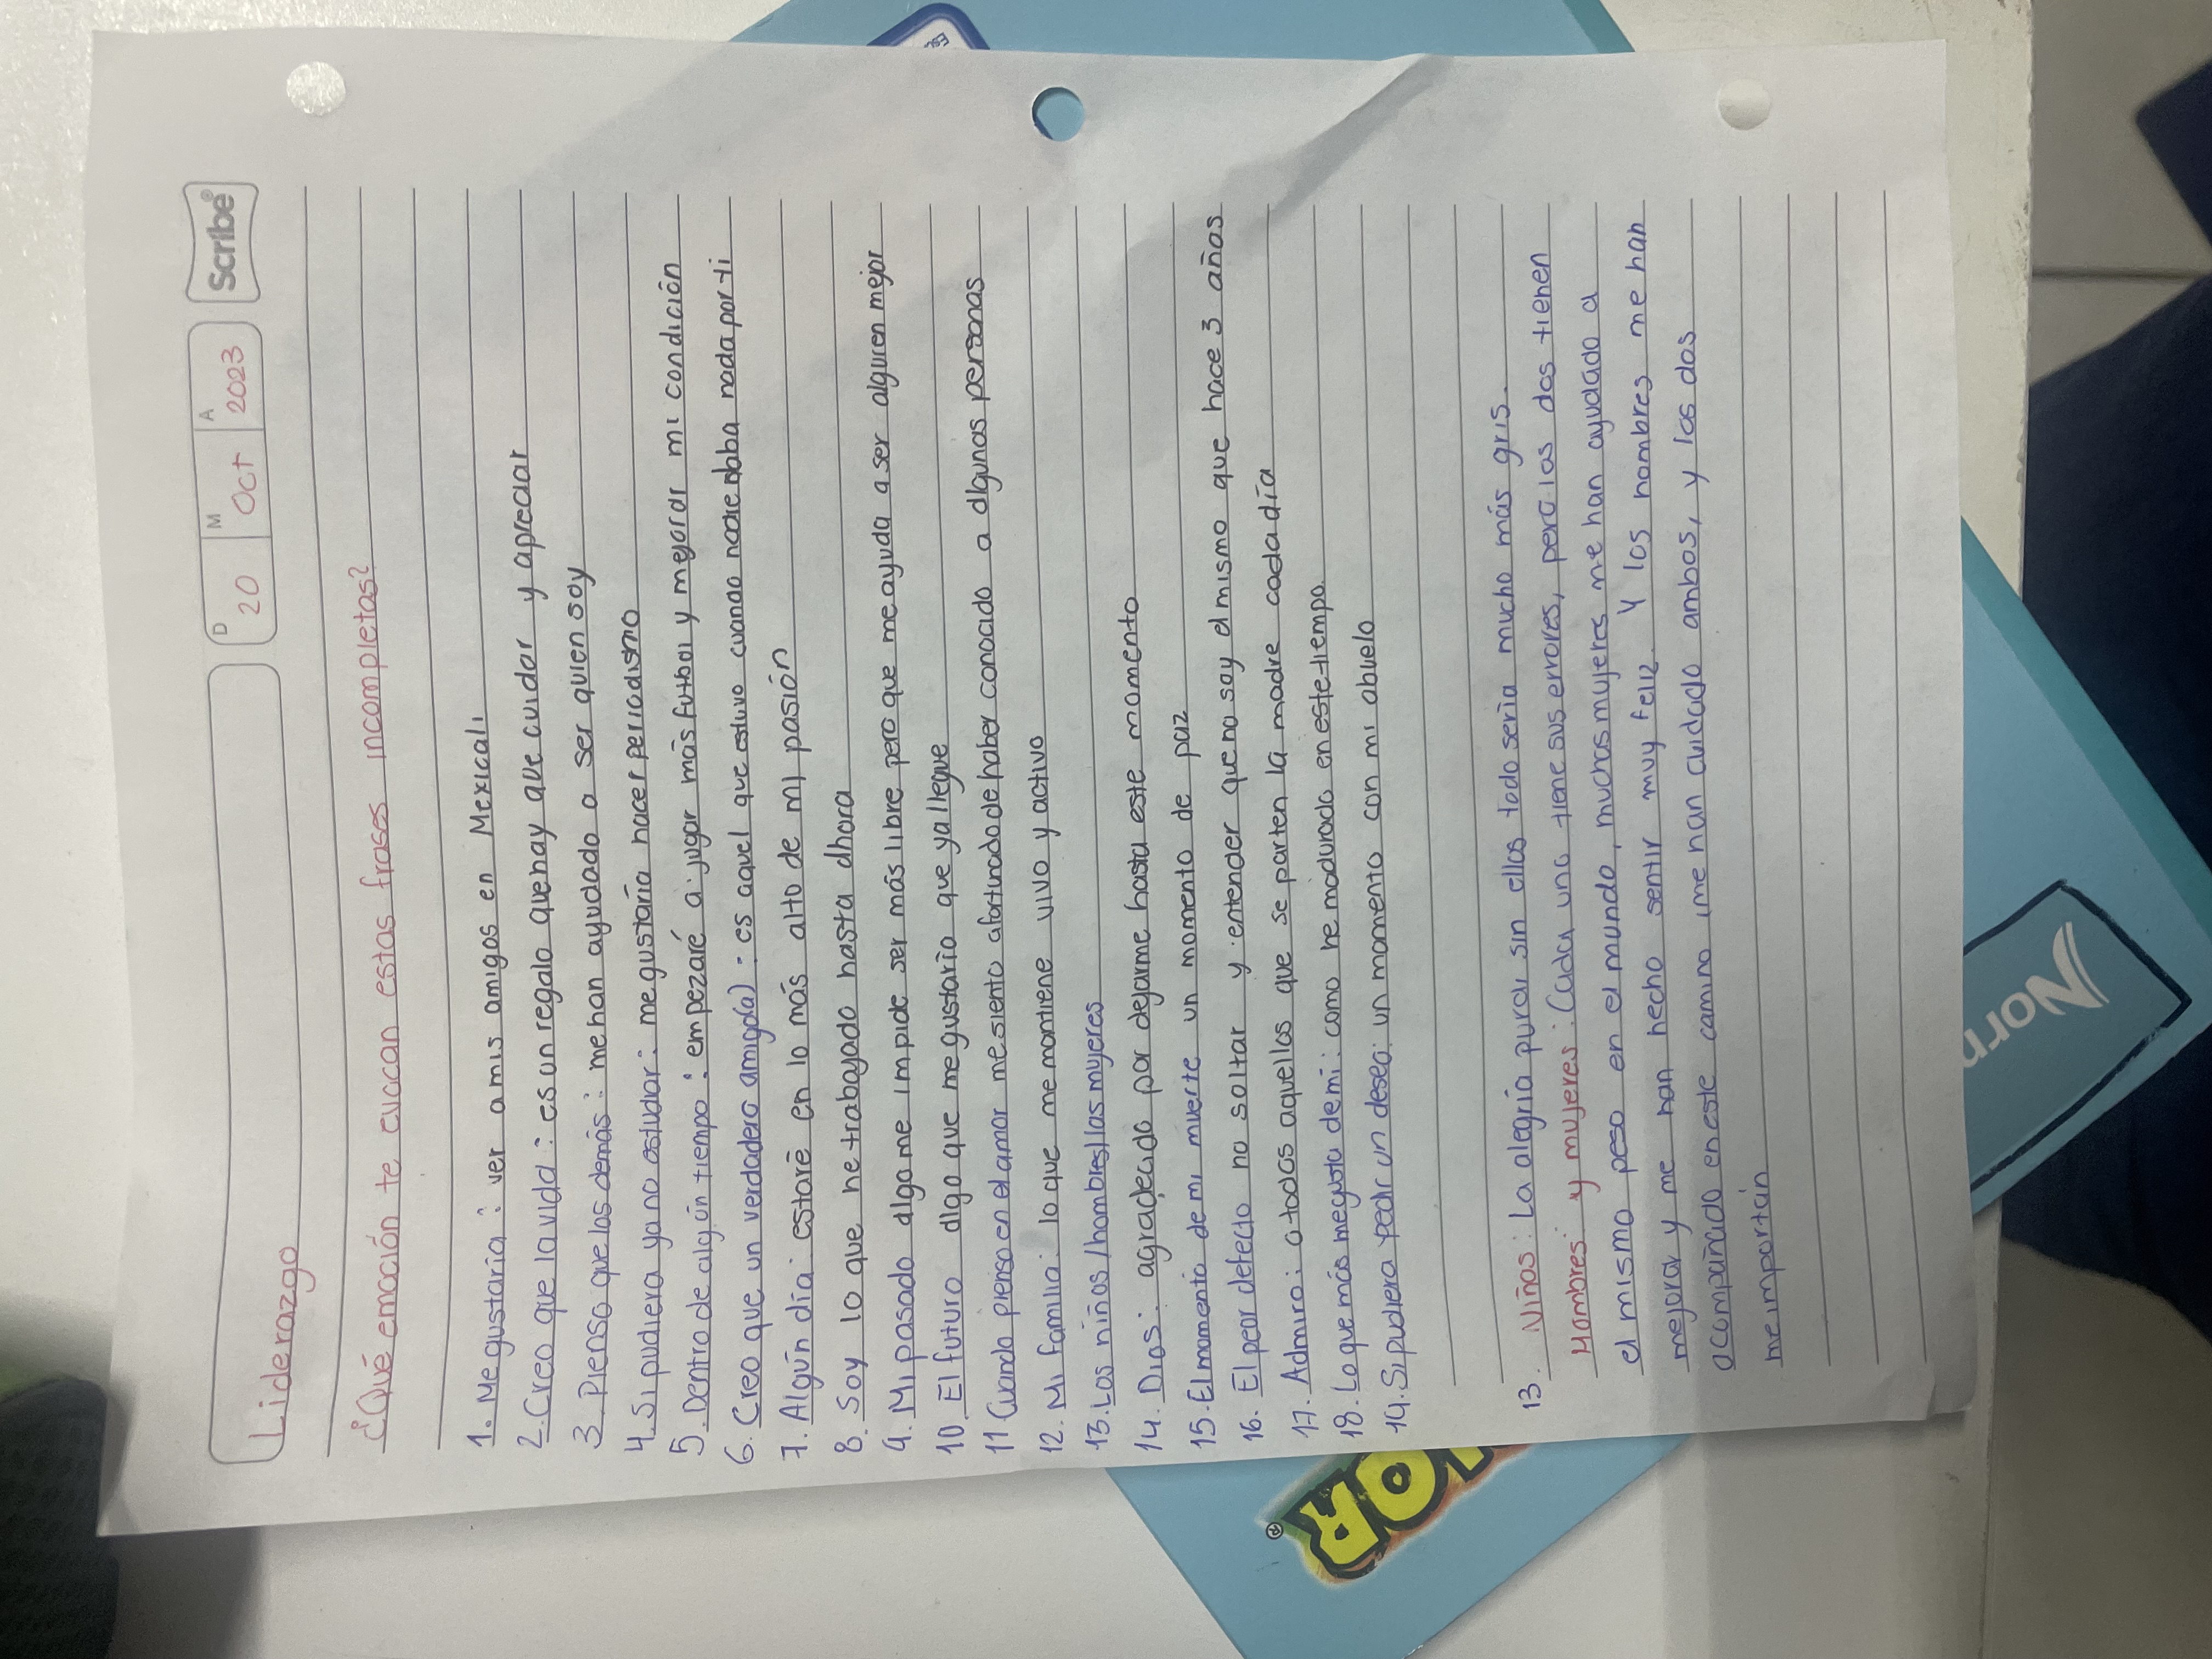 D M A
20 Oct 2023
Scribe®
Liderazgo
¿Qué emoción te evocan estas frases incompletas?
1. Me gustaría: ver a mis amigos en Mexicali
2. Creo que la vida: es un regalo que hay que cuidar y apreciar
3 Pienso que los demás: me han ayudado a ser quien soy
4. Si pudiera ya no estudiar: me gustaría hacer periodismo
5. Dentro de algún tiempo: empezaré a jugar más futbol y mejorar mi condición
6. Creo que un verdadero amigo(a): es aquel que estuvo cuando nadie daba nada por ti
7. Algún día: estaré en lo más alto de mi pasión
8. Soy lo que he trabajado hasta ahora
9. Mi pasado algo me impide ser más libre pero que me ayuda a ser alguien mejor
10. El futuro algo que me gustaría que ya llegue
11 Cuando pienso en el amor me siento afortunado de haber conocido a algunas personas
12. Mi familia: lo que me mantiene vivo y activo
13. Los niños/hombres/las mujeres
14. Dios: agradecido por dejarme hasta este momento
15. El momento de mi muerte un momento de paz
16. El peor defecto no soltar y entender que no soy el mismo que hace 3 años
17. Admiro: a todos aquellos que se parten la madre cada día
18. Lo que más me gusta de mi: como he madurado en este tiempo
19. Si pudiera pedir un deseo: un momento con mi abuelo
13. Niños: La alegría pura, sin ellos todo sería mucho más gris.
Hombres: y mujeres: Cada uno tiene sus errores, pero los dos tienen
el mismo peso en el mundo, muchas mujeres me han ayudado a
mejorar y me han hecho sentir muy feliz. Y los hombres me han
acompañado en este camino, me han cuidado ambos, y los dos
me importan
OR®
Norm